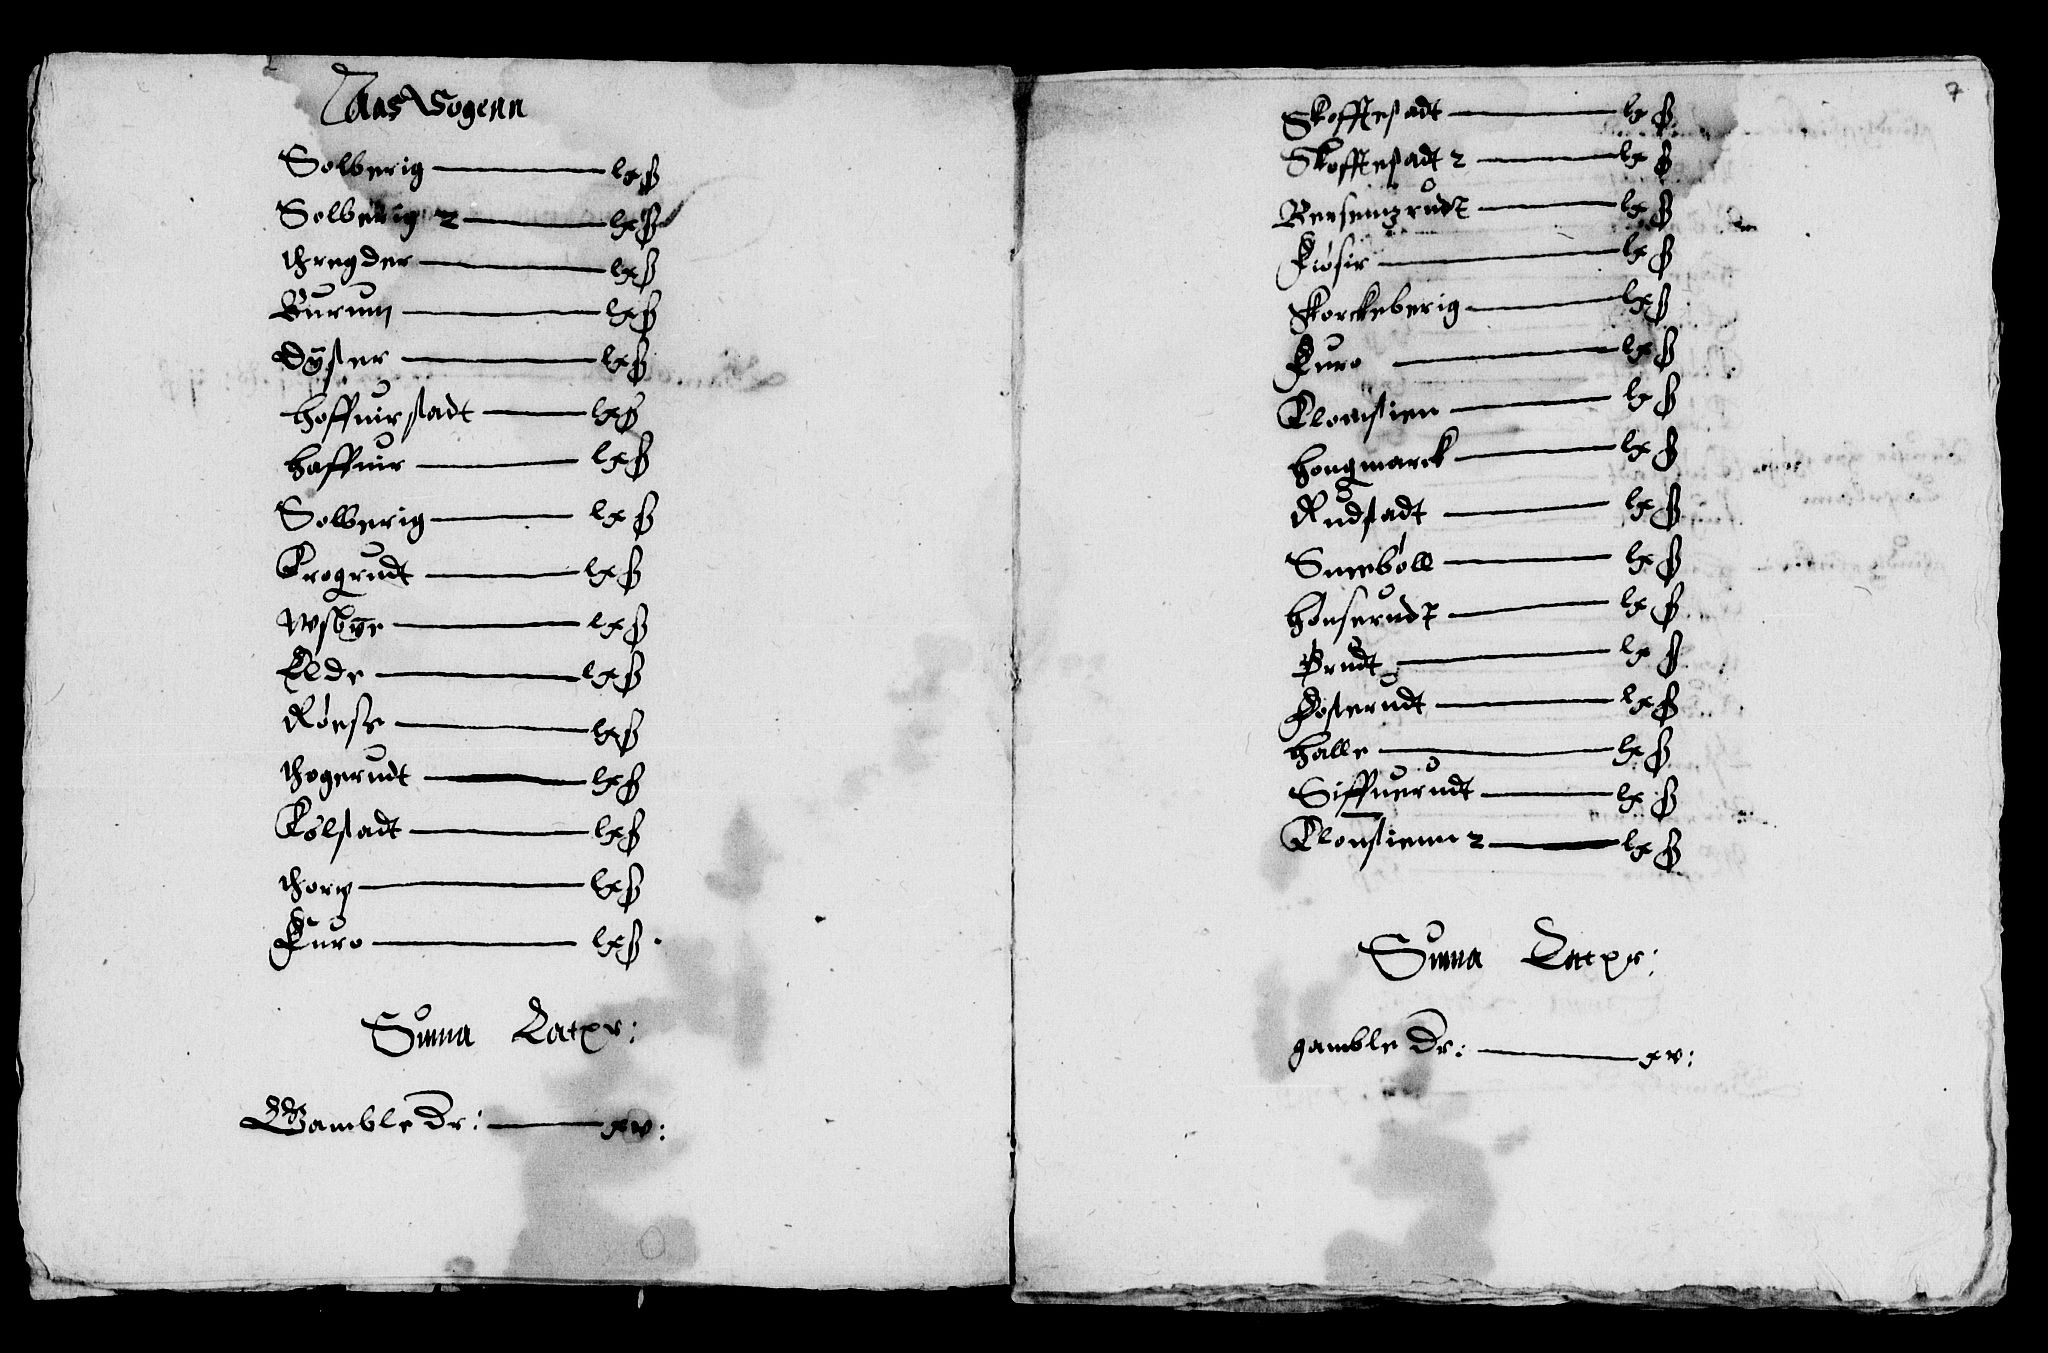 Aas Sogenn
Solberig — lx ß
Solberig 2 — lx ß
thregder — lx ß
Burum — lx ß
Dÿster — lx ß
hoffuirstadt — lx ß
haffuir — lx ß
Solberig — lx ß
Krogrudt — lx ß
Wsbÿe — lx ß
Elde — lx ß
Røese — lx ß
thogerudt — lx ß
Kølstadt — lx ß
thorp — lx ß
Kuro — lx ß
Suma Latxr:
Gamble Dr: — xv:
7
Skofftestadt — lx ß
Skofftestadt 2 — lx ß
Reersemzrudt — lx ß
Kiøsir — lx ß
Korckeberig — lx ß
Kuro — lx ß
Klomstien — lx ß
hougmarck — lx ß
Rudstadt — lx ß
Sneebøll — lx ß
honserudt — lx ß
Brudt — lx ß
Dosterudt — lx ß
halle — lx ß
Siffuerudt — lx ß
Klonstienn 2 — lx ß
Suma Latxr:
gamble Dr: — xv: